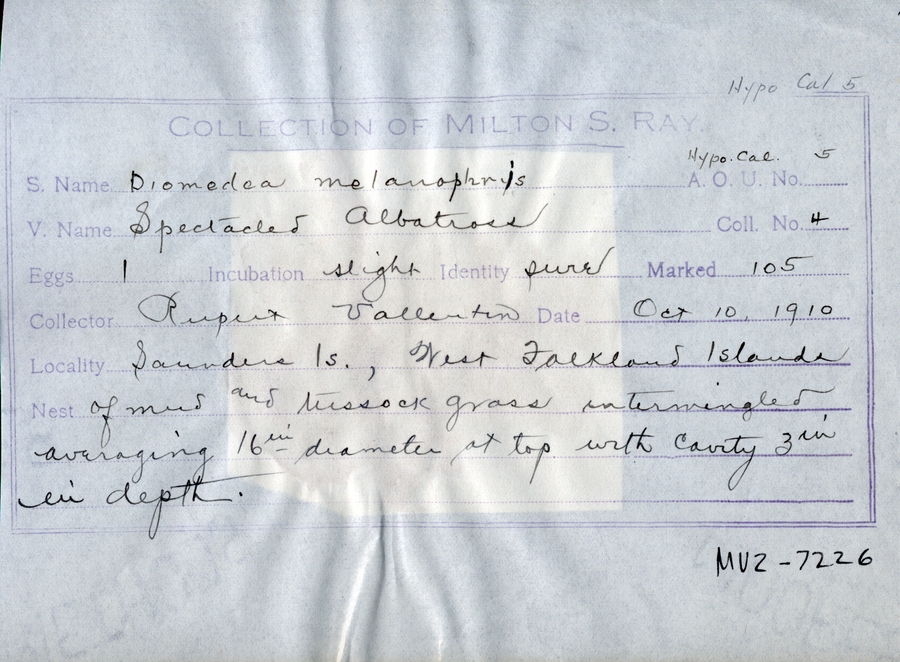 Hypo Cal 5
COLLECTION OF MILTON S. RAY.
Hypo. Cal. 5
S. Name Diomedea melanophrys A. O. U. No.
V. Name Spectacled Albatross Coll. No. 4
Eggs 1 Incubation slight Identity sure Marked 105
Collector Rupert Vallentin Date Oct 10, 1910
Locality Saunders Is., West Falkland Islands
Nest of mud and tussock grass intermingled
averaging 16 in diameter at top with cavity 3 in
in depth.
MVZ-7226